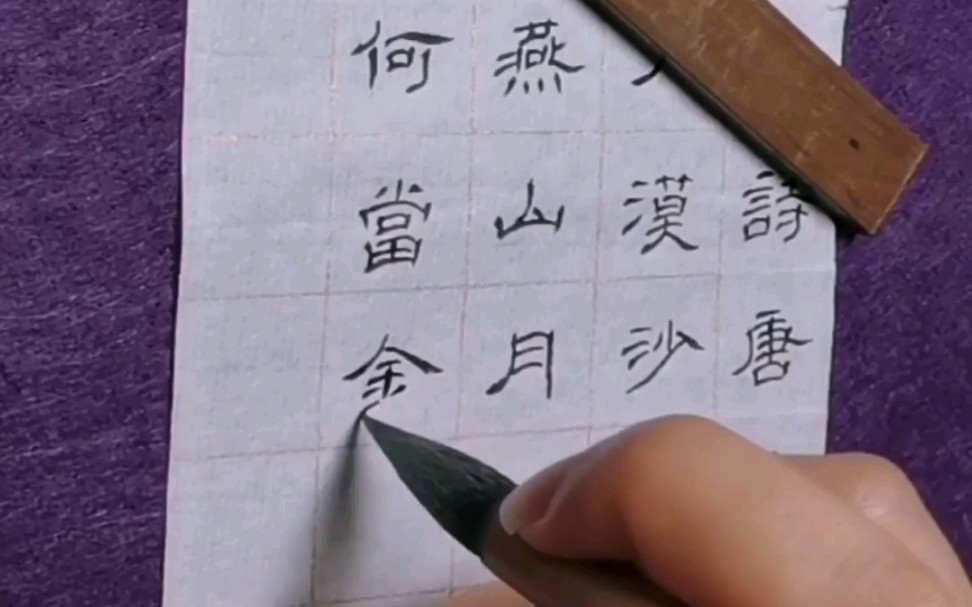 詩唐
漠沙
燕山月
何當金